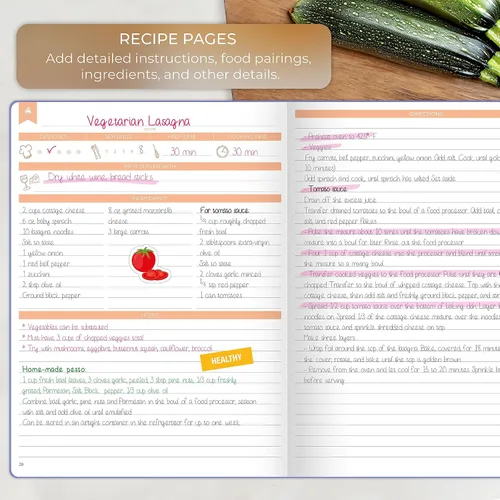 RECIPE PAGES
Add detailed instructions, food pairings,
ingredients, and other details.
Vegetarian Lasagna
8
30 min
30 min
Dry white wine, bread sticks
2 cups cottage cheese
6 oz baby spinach
10 lasagna noodles
Salt to taste
1 yellow onion
1 red bell pepper
1 zucchini
2 tbsp olive oil
Ground black pepper
8 oz grated mozzarella
cheese
3 large carrots
For tomato sauce:
1/4 cup roughly chopped
fresh basil
2 tablespoons extra-virgin
olive oil
Salt to taste
2 cloves garlic minced
1/4 tsp red pepper
1 can tomatoes
NOTES
* Vegetables can be substituted
* Must have 3 cups of chopped veggies total
* Try with mushrooms, eggplant, butternut squash, cauliflower, broccoli
HEALTHY
Home-made pesto:
1 cup fresh basil leaves, 3 cloves garlic, peeled, 3 tbsp pine nuts, 1/3 cup freshly
grated Parmesan, Salt, Black pepper, 1/3 cup olive oil
Combine basil, garlic, pine nuts and Parmesan in the bowl of a food processor, season
with salt and add olive oil until emulsified
Can be stored in an airtight container in the refrigerator for up to one week
DIRECTIONS
- Preheat oven to 425° F
- Veggies
Fry carrots, bell pepper, zucchini, yellow onion. Add salt. Cook until
10 minutes)
Add spinach and cook, until spinach has wilted. Set aside.
- Tomato sauce
Drain off the excess juice
Transfer drained tomatoes to the bowl of a food processor. Add basil,
salt, and red pepper flakes
- Pulse the mixture about 10 times, until the tomatoes have broken
mixture into a bowl for later. Rinse out the food processor
- Pour 1 cup of cottage cheese into the processor and blend until
the mixture to a mixing bowl
- Transfer cooked veggies to the food processor. Pulse until they are
chopped. Transfer to the bowl of whipped cottage cheese. Top with
cottage cheese, then add salt and freshly ground black pepper, and
- Spread 1/2 cup tomato sauce over the bottom of baking dish. Layer
noodles on. Spread 1/3 of the cottage cheese mixture over the noodles
tomato sauce and sprinkle shredded cheese on top
Make three layers
- Wrap foil around the top of the lasagna. Bake, covered, for 18
the cover, rotate, and bake until the top is golden brown
- Remove from the oven and let cool for 15 to 20 minutes. Sprinkle
before serving